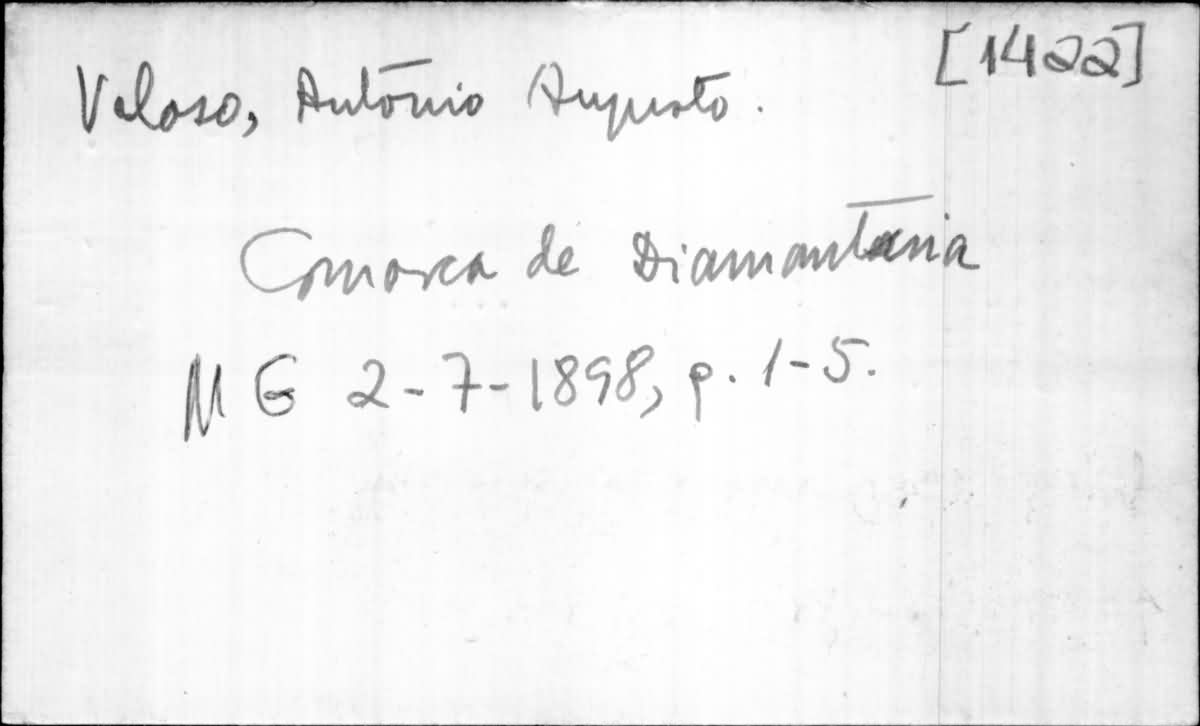 [1422]
Veloso, Antônio Augusto.
Comarca de Diamantina
MG 2-7-1898, p. 1-5.